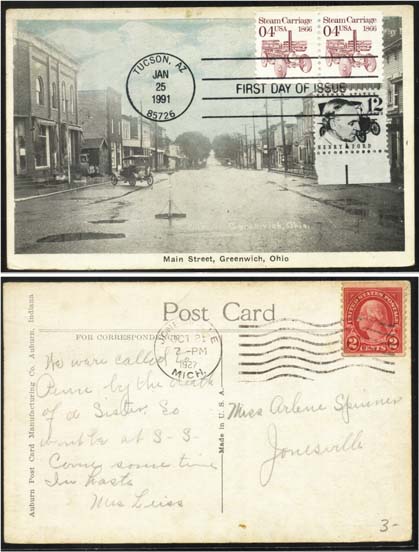 Steam Carriage
04 USA 1866
Steam Carriage
04 USA 1866
TUCSON, AZ
JAN
25
1991
85726
FIRST DAY OF ISSUE
12
HENRY FORD
Greenwich, Ohio.
Main Street, Greenwich, Ohio
Post Card
FOR CORRESPONDENCE
OCT 21
2-PM
1927
MICH.
UNITED STATES POSTAGE
2 CENTS 2
Auburn Post Card Manufacturing Co. Auburn, Indiana
Made in U.S.A.
We were called to
by the death
of a Sister. So
at S-S
Come some time
In haste
Mrs
Miss Arlene
Jonesville
3-